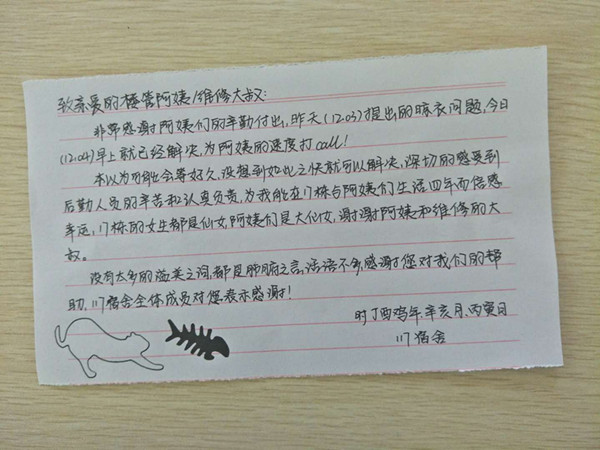 致亲爱的楼管阿姨/维修大叔:
非常感谢阿姨们的辛勤付出,昨天(12.03)提出的晾衣问题,今日
(12.04)早上就已经解决,为阿姨的速度打call!
本以为可能会等好久,没想到如此之快就可以解决,深切的感受到
后勤人员的辛苦和认真负责,为我能在17栋与阿姨们生活四年而倍感
幸运,17栋的女生都是仙女,阿姨们是大仙女,谢谢阿姨和维修的大
叔。
没有太多的溢美之词,都是肺腑之言,话语不多,感谢您对我们的帮
助,117宿舍全体成员对您表示感谢!
时丁酉鸡年、辛亥月、丙寅日
117宿舍